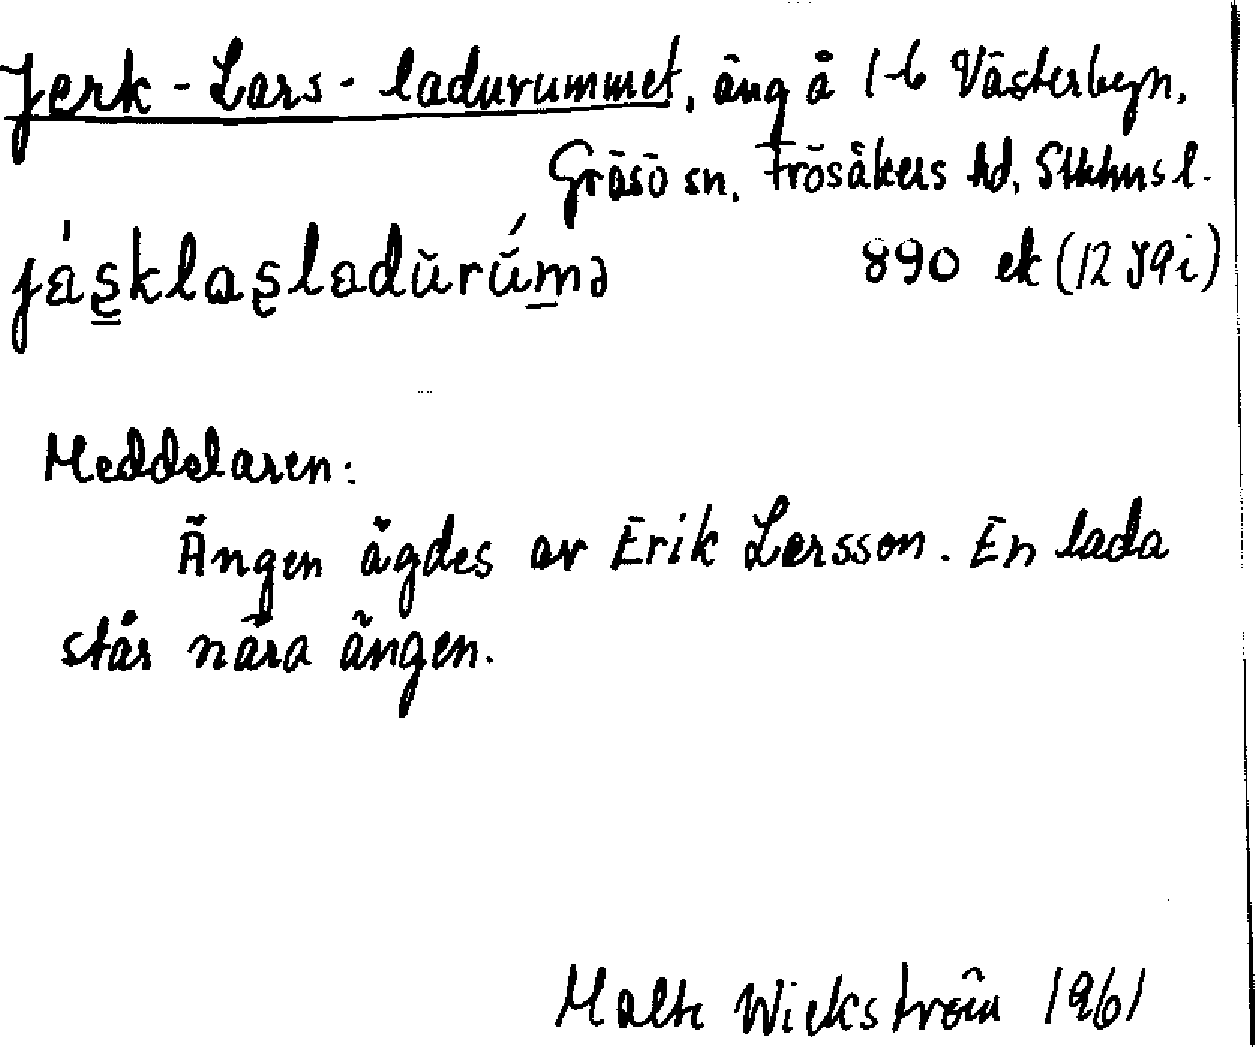 Jerk-Lars-ladurummet, äng å 1-6 Västerbyn,
Gräsö sn, Frösåkers hd, Sthlms l.
890 ek (12 J9i)
Meddelaren:
Ängen ägdes av Erik Larsson. En lada
står nära ängen.
Malte Wickström 1961